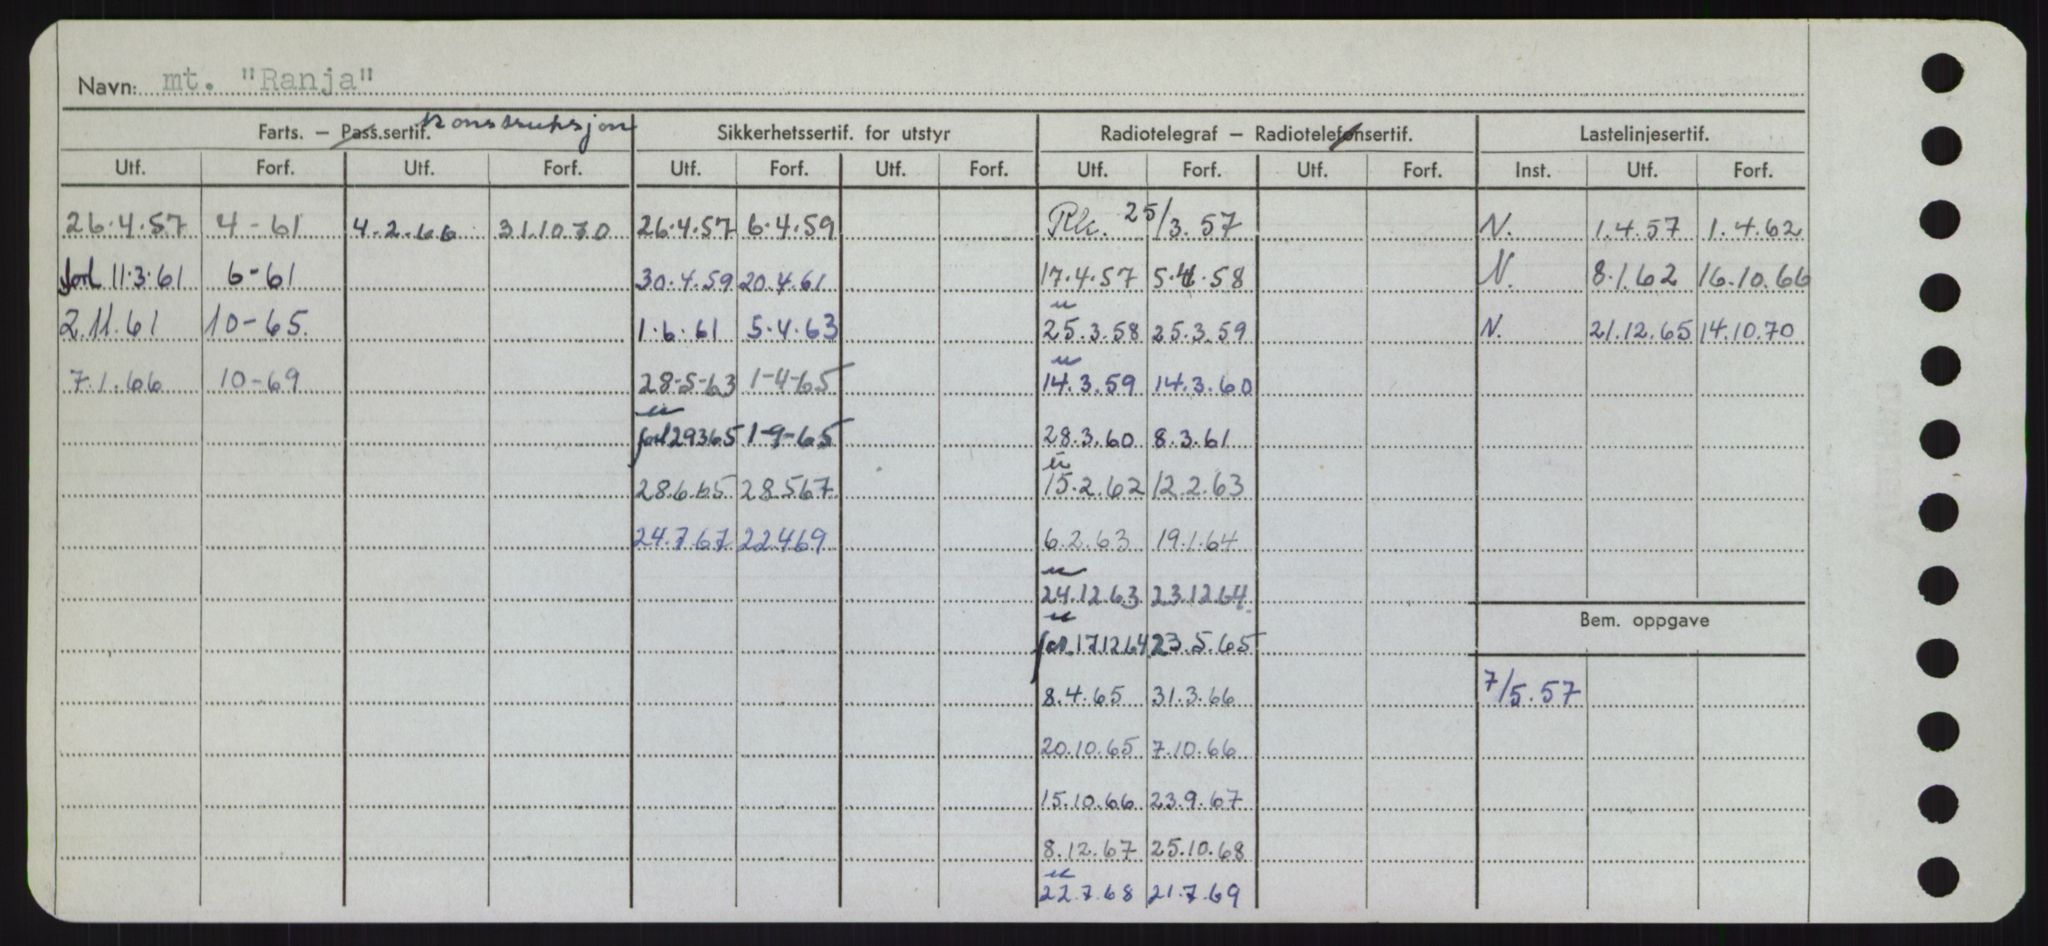 Navn: mt. "Ranja"
Farts. – Pass.sertif. Konstruksjon Sikkerhetssertif. for utstyr Radiotelegraf – Radiotelefonsertif. Lastelinjesertif.
Utf. Forf. Utf. Forf. Utf. Forf. Utf. Forf. Utf. Forf. Utf. Forf. Inst. Utf. Forf.
26.4.57 4-61 4.2.66 31.10.70 26.4.57 6.4.59 Rk. 25/3.57 N. 1.4.57 1.4.62
forl 11.3.61 6-61 30.4.59 20.4.61 17.4.57 5.4.58 N. 8.1.62 16.10.66
2.11.61 10-65. 1.6.61 5.4.63 25.3.58 25.3.59 N. 21.12.65 14.10.70
7.1.66 10-69 28-5-63 1-4-65 14.3.59 14.3.60
forl 29365 1-9-65 28.3.60 8.3.61
28.6.65 28.567 15.2.62 12.2.63
24.7.67 22469 6.2.63 19.1.64
24.12.63 23.12.64
Bem. oppgave
forl 171264 23.5.65
8.4.65 31.3.66 7/5.57
20.10.65 7.10.66
15.10.66 23.9.67
8.12.67 25.10.68
22.7.68 21.7.69